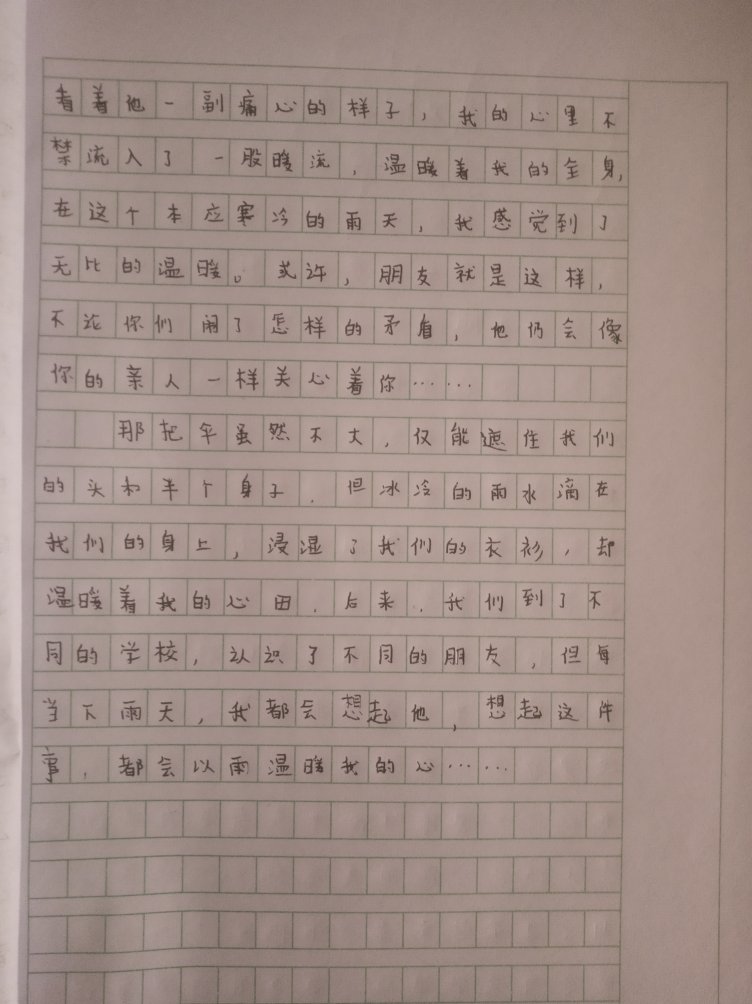 看着他一副痛心的样子，我的心里不
禁流入了一股暖流，温暖着我的全身，
在这个本应寒冷的雨天，我感觉到了
无比的温暖。或许，朋友就是这样，
不论你们闹了怎样的矛盾，他仍会像
你的亲人一样关心着你……
那把伞虽然不大，仅能遮住我们
的头和半个身子，但冰冷的雨水滴在
我们的身上，浸湿了我们的衣衫，却
温暖着我的心田，后来，我们到了不
同的学校，认识了不同的朋友，但每
当下雨天，我都会想起他，想起这件
事，都会以雨温暖我的心……